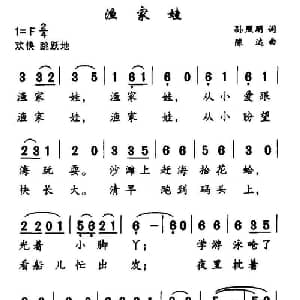 渔家娃
1=F 2/4
欢快 跳跃地
孙照明 词
陈达 曲
3 332 | 3 5 | 1 61 | 6 0 | 3 32 | 1 61 |
渔家 娃,渔家 娃,从小爱跟
渔家 娃,渔家 娃,从小盼望
231 | 2 0 | 35 35 | 61 65 | 3532 | 6 0 |
海玩耍。沙滩上赶海拾花蛤,
快长大。清早 跑到码头上,
2202 | 201 | 5621 | 6 - | 6060 | 2202 |
光着 小脚 丫;学游泳呛了
看船儿忙出 发;夜里枕着